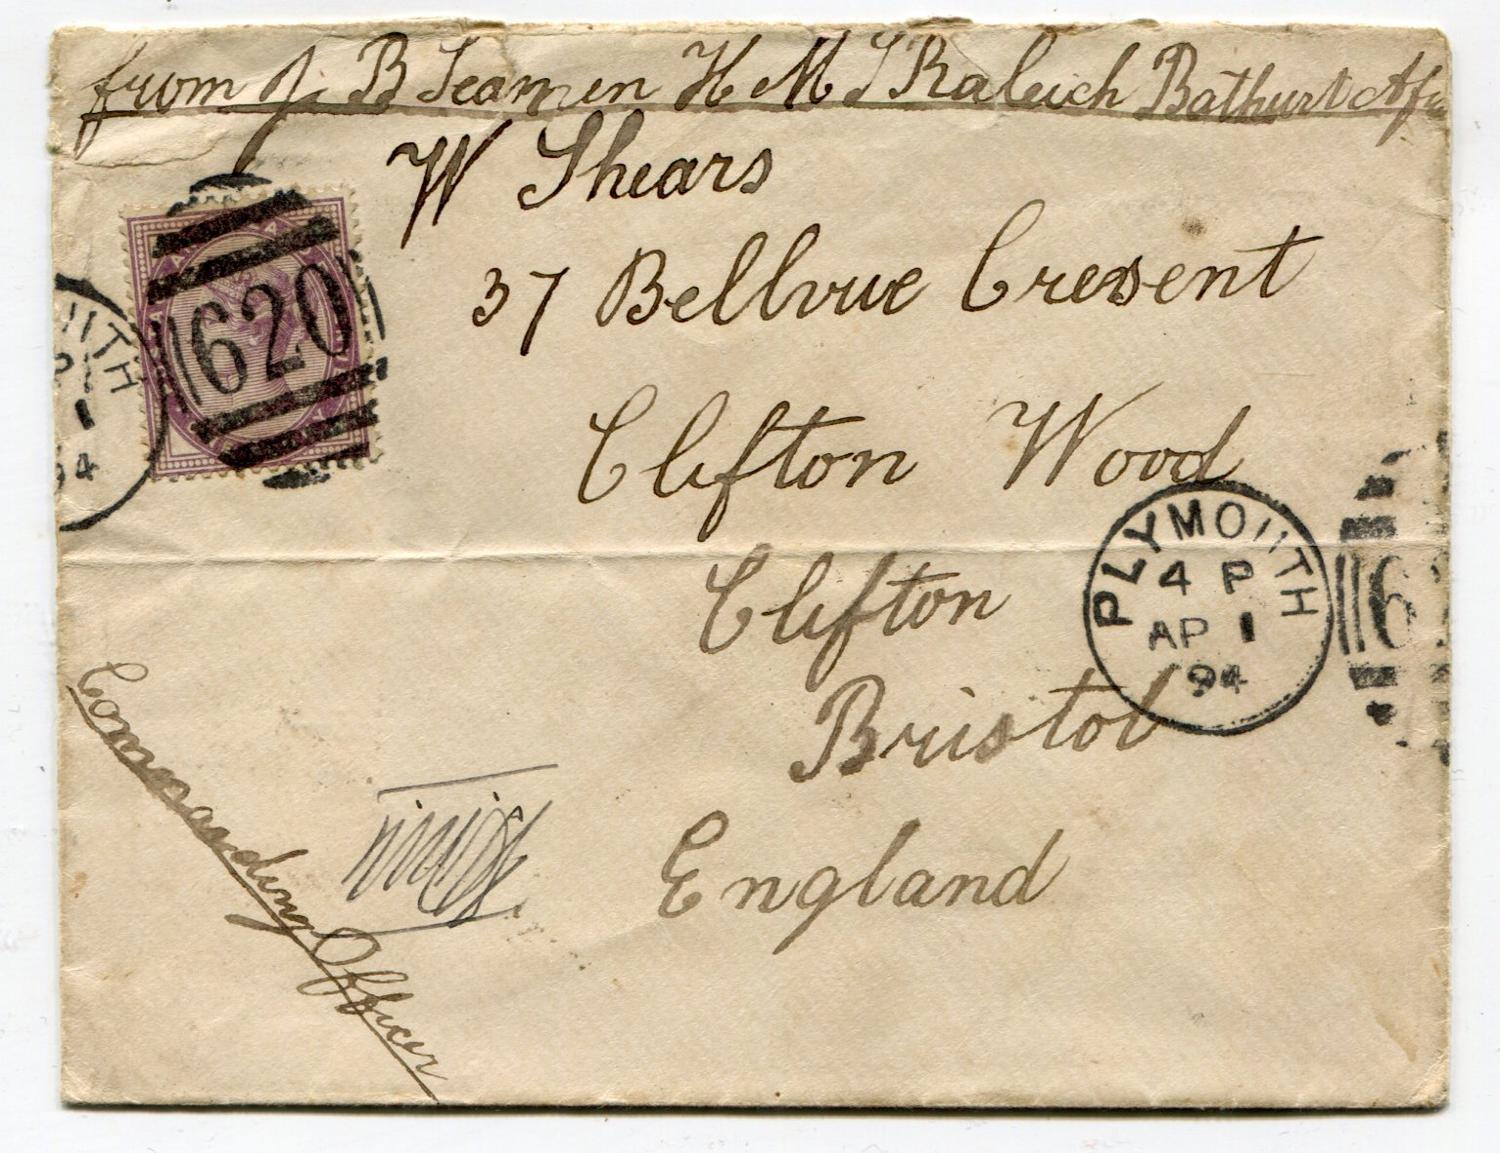 from J. B Seamen H M S Raleich Bathurst Af
W Shears
37 Bellvue Cresent
Clifton Wood
Clifton
Bristol
England
Commanding Officer
620
MOUTH
P
1
94
PLYMOUTH
4 P
AP 1
94
62